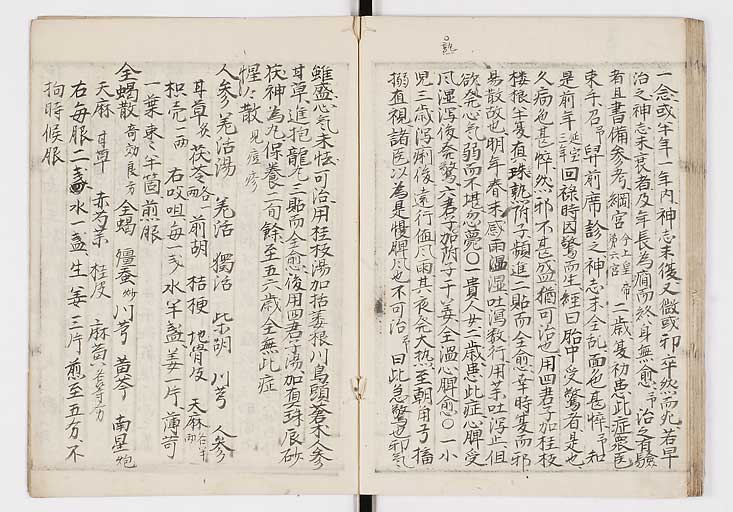 一念或半年一年内神志未復又倣或卒然而死若早
治之神志未衰者及年長為癇而終身無愈予治之有驗
者且書備参考綱宮今上皇帝第六宮二歳夏初患此症衆医
束手召予舁前席診之神志未全乱面色甚悴予知
是前年延宝三年回禄時因驚而生経曰胎中受驚者是也
久病色甚悴然邪不甚盛猶可治也用四君子加桂枝
楼根半夏真珠熟附子頻進二貼而全愈幸時夏而邪
易散故也明年春末感雨湿吐瀉数行用薬吐瀉止但
欲発心気弱而不堪忽薨〇一貴人女二歳患此症心脾受
風湿瀉後発驚六君子加附子干姜全温心脾愈〇一小
児三歳瀉痢後遠行値風雨其夜発大热至朝目弓搐
搦直視諸医以為是慢脾風也不可治予曰此急驚也邪気
雖盛心気未怯可治用桂枝湯加括蔞根川烏頭蒼朮参
甘草進抱龍丸三貼而全愈後用四君子湯加真珠辰砂
茯神為丸保養二旬餘至五六歳全無此症
惺々散見痘疹
人参羌活湯 羌活 獨活 柴胡 川芎 人参
甘草炙 茯苓略 前胡 桔梗 地骨皮 天麻各半両
枳壳一両 右㕮咀毎一匁水半盞姜一片薄苛
一葉棗半箇煎服
全蝎散奇効良方 全蝎 殭蚕炒 川芎 黄芩 南星炮
天麻 甘草 赤芍薬 桂皮 麻黄各等分
右毎服二匁水一盞生姜三片煎至五分不
拘時候服